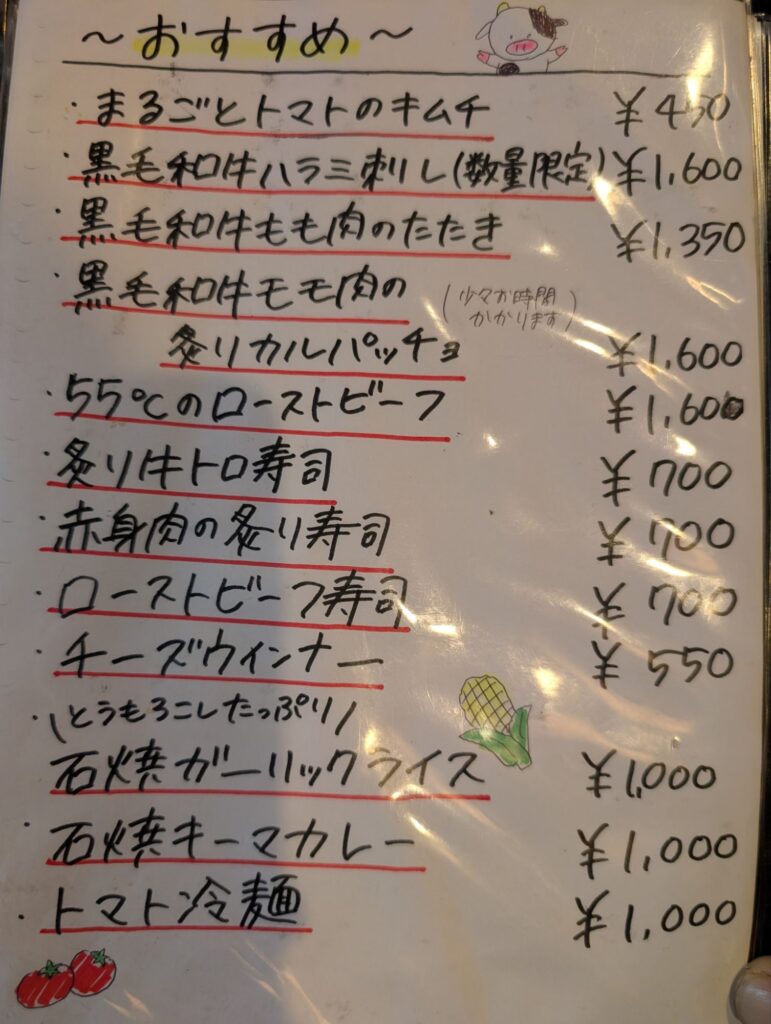 ～おすすめ～
・まるごとトマトのキムチ ¥450
・黒毛和牛ハラミ刺し(数量限定) ¥1,600
・黒毛和牛もも肉のたたき ¥1,350
・黒毛和牛モモ肉の (少々お時間
かかります)
炙りカルパッチョ ¥1,600
・55℃のローストビーフ ¥1,600
・炙り牛トロ寿司 ¥700
・赤身肉の炙り寿司 ¥700
・ローストビーフ寿司 ¥700
・チーズウィンナー ¥550
・\とうもろこしたっぷり/
石焼ガーリックライス ¥1,000
・石焼キーマカレー ¥1,000
・トマト冷麺 ¥1,000